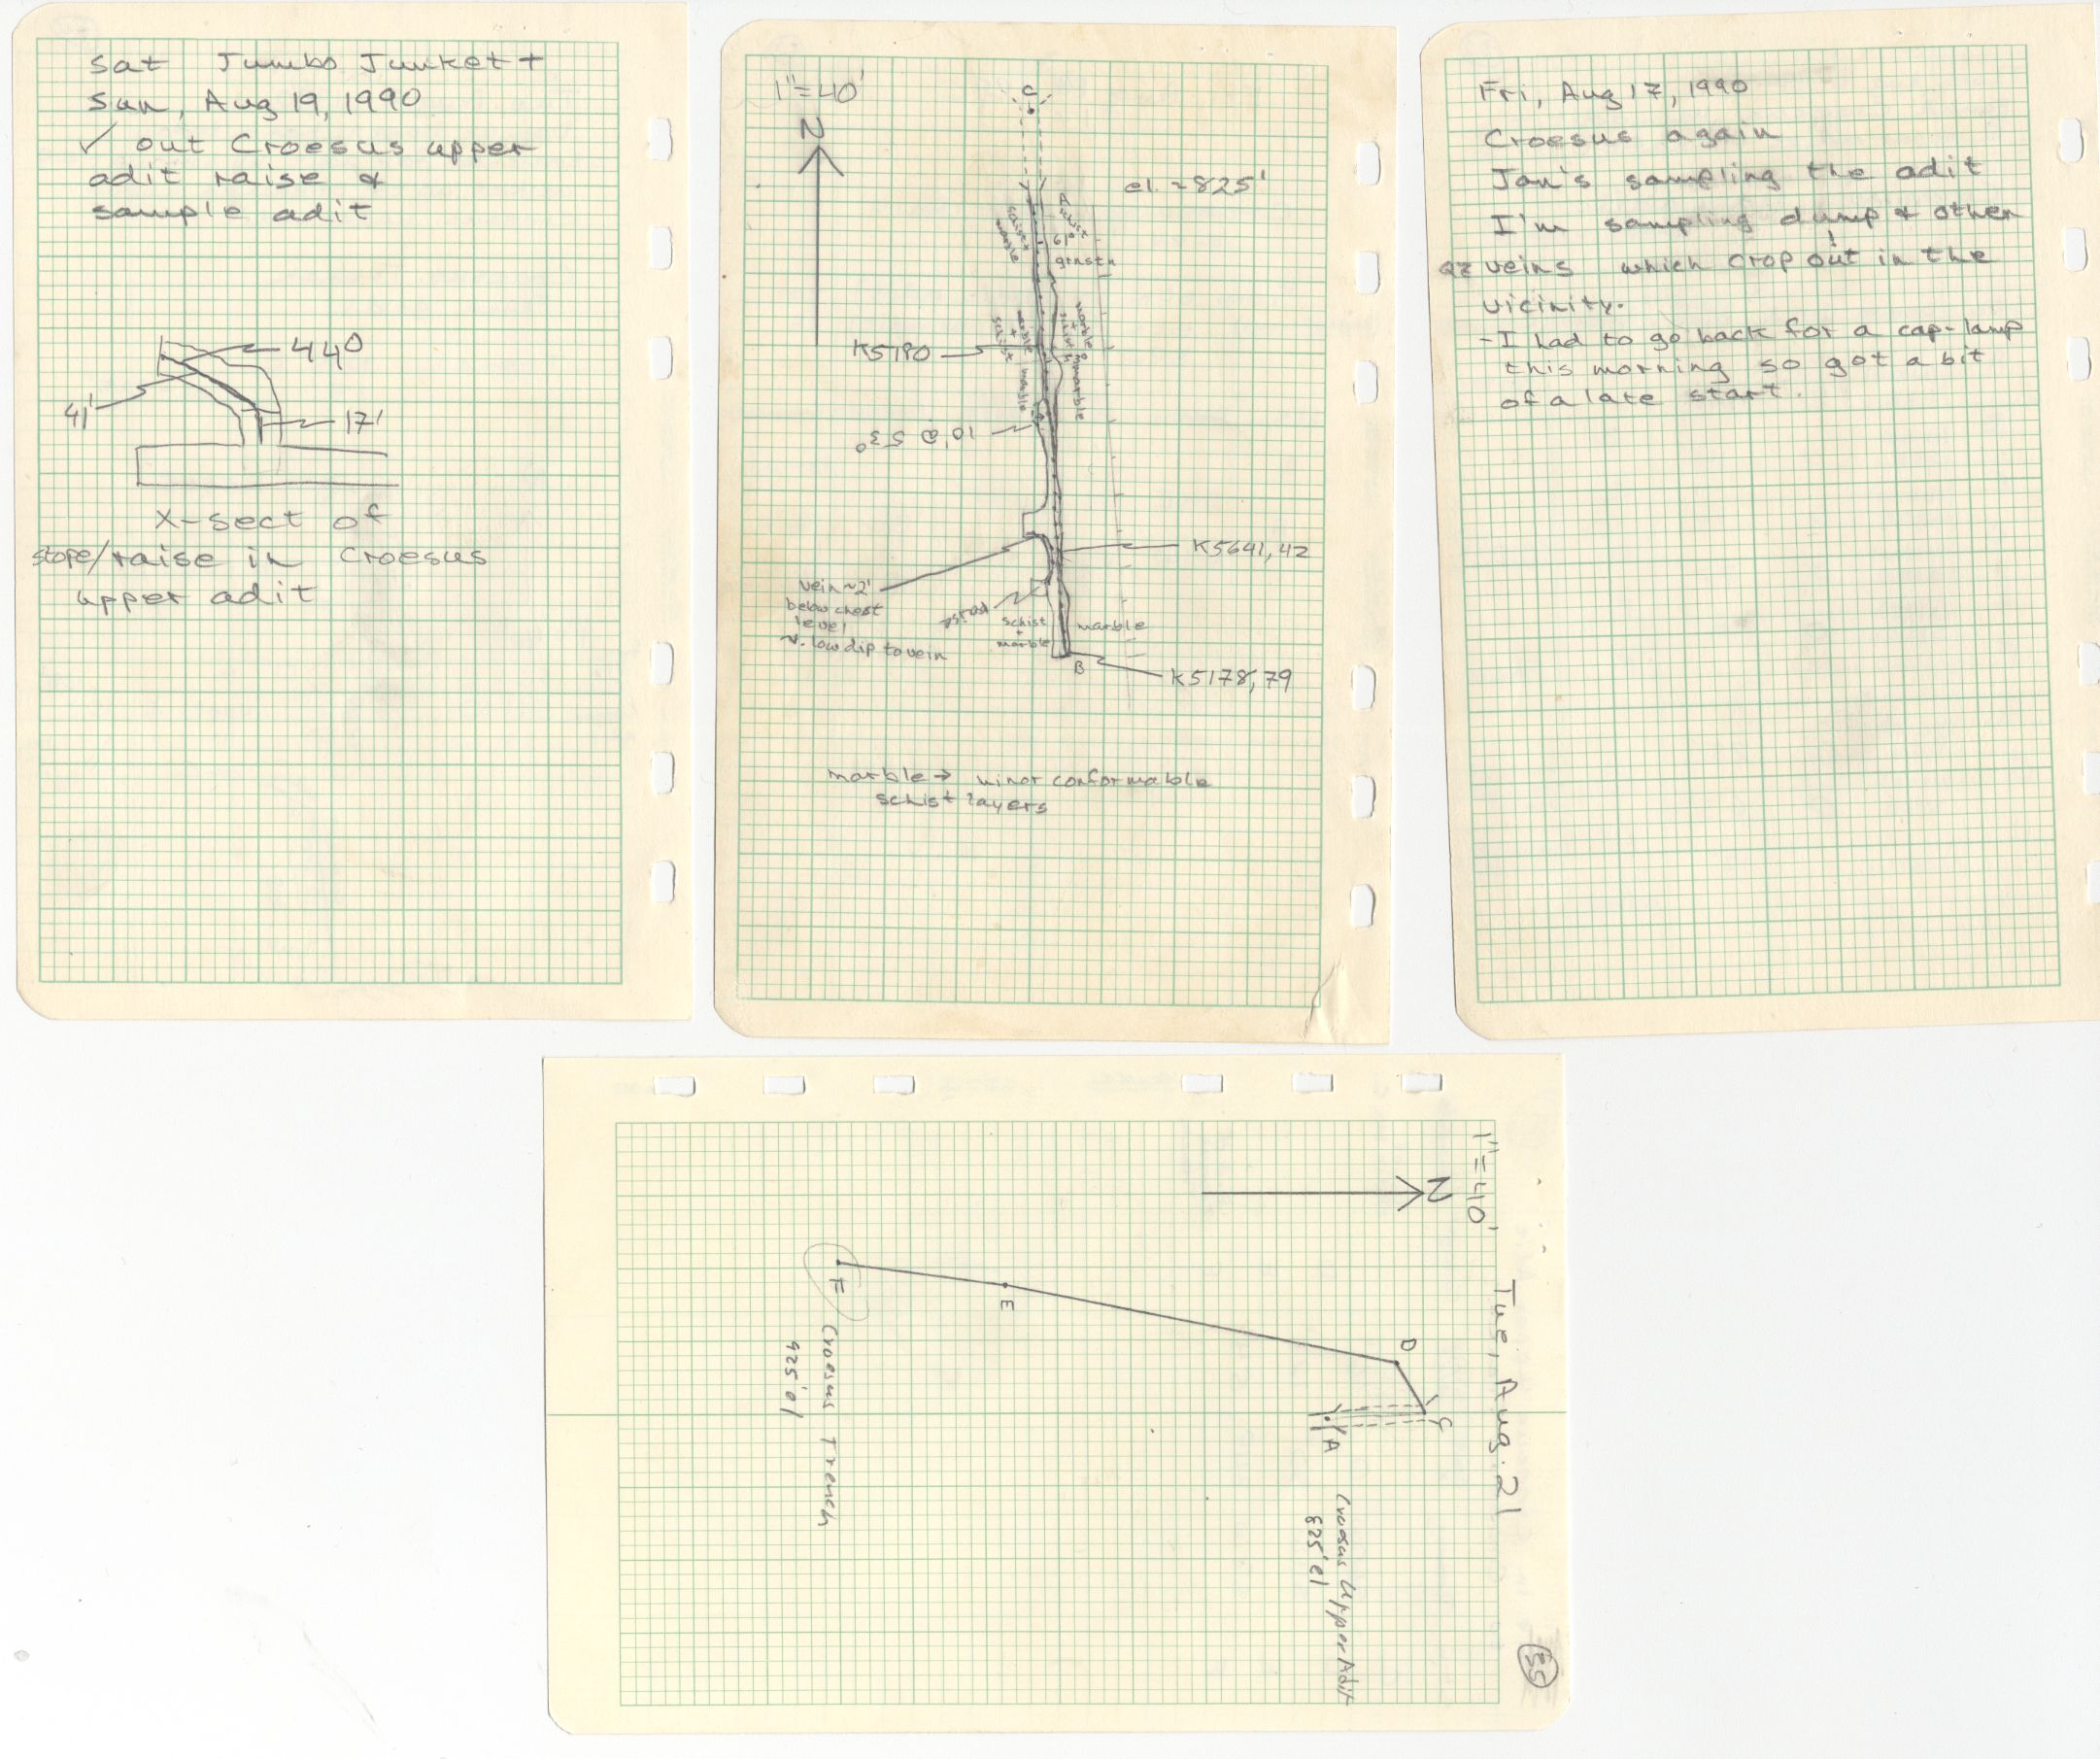 Sat Jumbo Junkett
Sun, Aug 19, 1990
✓ out Croesus upper
adit raise &
sample adit
44°
41'
17'
X-sect of
stope/raise in Croesus
upper adit
1"=40'
N
C
el. ~825'
A
schist
61°
grnstn
schist
marble
marble
+
schist
marble
+
schist
K5180
marble
marble
10' @ 53°
K5641,42
vein ~2'
below chest
level
~v. low dip to vein
schist
+
marble
marble
B
K5178,79
marble → minor conformable
schist layers
Fri, Aug 17, 1990
Croesus again
Jan's sampling the adit
I'm sampling dump & other
qz veins which crop out in the
vicinity.
-I had to go back for a cap-lamp
this morning so got a bit
of a late start.
Tue, Aug. 21
1"=40'
N
C
D
A
E
F
Croesus Upper Adit
825' el
Croesus Trench
925' el